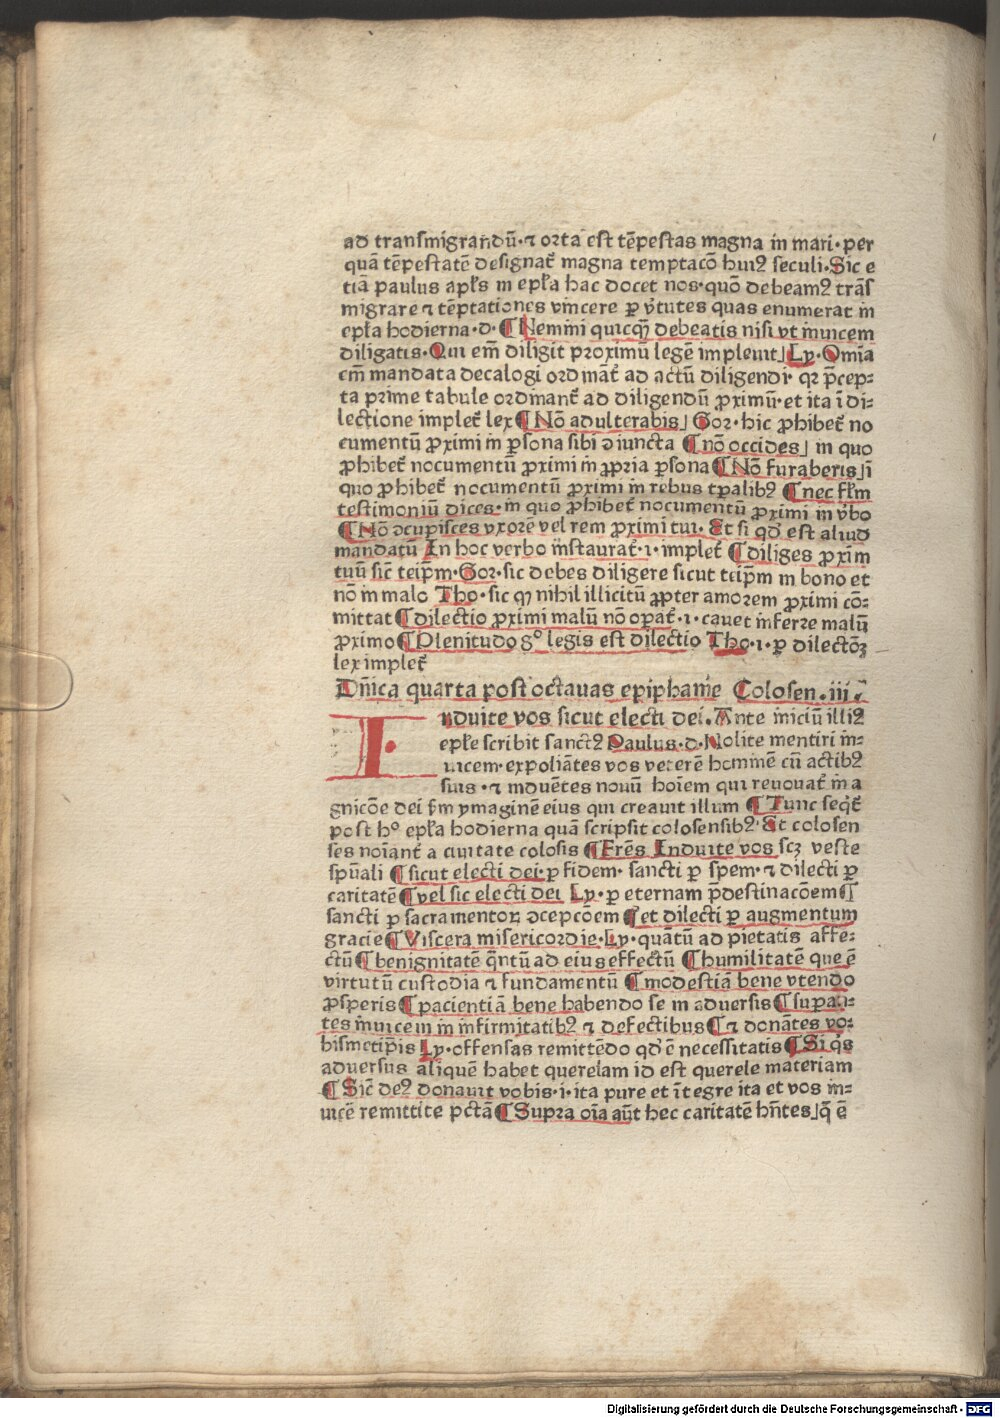 ad transmigrandū·⁊ orta est tēpestas magna in mari·per
quā tēpestatē designat᷑ magna temptacō huiꝰ seculi·Sic e
tiā paulus apłs in epła hac docet nos·quō debeamꝰ trās
migrare ⁊ tēptationes vincere ꝑ v̓tutes quas enumerat in
epła hodierna·d·¶Nemini quicꝙ̄ debeatis nisi vt inuicem
diligatis·Qui em̄ diligit proximū legē impleuit⌋Ly·Om̄ia
em̄ mandata decalogi ordinat᷑ ad actū diligendi·qꝛ p̄cep⸗
ta prime tabule ordinant᷑ ad diligendū ꝓximū·et ita ī di⸗
lectione implet᷑ lex¶Nō adulterabis⌋Gor·hic ꝓhibet᷑ no
cumentū ꝓximi in ꝑsona sibi ↄiuncta ¶nō occides⌋ in quo
ꝓhibet᷑ nocumentū ꝓximi in ꝓpria ꝑsona¶Nō furaberis⌋ī
quo ꝓhibet᷑ nocumentū ꝓximi in rebus tꝑalibꝰ ¶nec fłm
testimoniū dices·in quo ꝓhibet᷑ nocumentū ꝓximi in v̓bo
¶Nō ↄcupisces vxorē vel rem ꝓximi tui·Et si qd̄ est aliud
mandatū In hoc verbo instaurat᷑·i·implet᷑ ¶diliges ꝓxim
tuū sic̄ teip̄m·Gor·sic debes diligere sicut teip̄m in bono et
nō in malo Tho·sic ꝙ nihil illicitū ꝓpter amorem ꝓximi cō⸗
mittat¶dilectio ꝓximi malū nō oꝑat᷑·i·cauet inferre malū
ꝓximo¶Plenitudo gͦ legis est dilectio Tho·i·ꝑ dilectōꝫ
lex implet᷑
Dn̄ica quarta post octauas epiphanie Colosen·iii·
Induite vos sicut electi dei·Ante iniciū illiꝰ
epłe scribit sanctꝰ Paulus·d·Nolite mentiri in⸗
uicem·expoliātes vos veterē hominē cū actibꝰ
suis·⁊ induētes nouū hoīem qui renouat᷑ in a
gnicōe dei ẜm ymaginē eius qui creauit illum ¶Tunc seqt᷑
post hͦ epła hodierna quā scripsit colosensibꝰ·Et colosen
ses noīant᷑ a ciuitate colosis ¶Frēs Induite vos scꝫ veste
spūali ¶sicut electi dei·ꝑ fidem·sancti ꝑ spem·⁊ dilecti ꝑ
caritatē¶vel sic electi dei Ly·ꝑ eternam p̄destinacōem¶
sancti ꝑ sacramentoꝝ ↄcepcōem¶et dilecti ꝑ augmentum
gracie¶Viscera misericordie·Ly·quātū ad pietatis affe⸗
ctū¶benignitatē q̄ntū ad eius effectū ¶humilitatē que ē
virtutū custodia ⁊ fundamentū ¶modestiā bene vtendo
ꝓsperis¶pacientiā bene habendo se in aduersis¶supꝑan⸗
tes inuicem in infirmitatibꝰ ⁊ defectibus¶⁊ donātes vo⸗
bismetip̄is Ly·offensas remittēdo qd̄ ē necessitatis¶Si q̄s
aduersus aliquē habet querelam id est querele materiam
¶Sic̄ deꝰ donauit vobis·i·ita pure et īntegre ita et vos in⸗
uicē remittite pctā¶Supra oīa aūt hec caritatē hn̄tes⌋q̄ ē
Digitalisierung gefördert durch die Deutsche Forschungsgemeinschaft - DFG